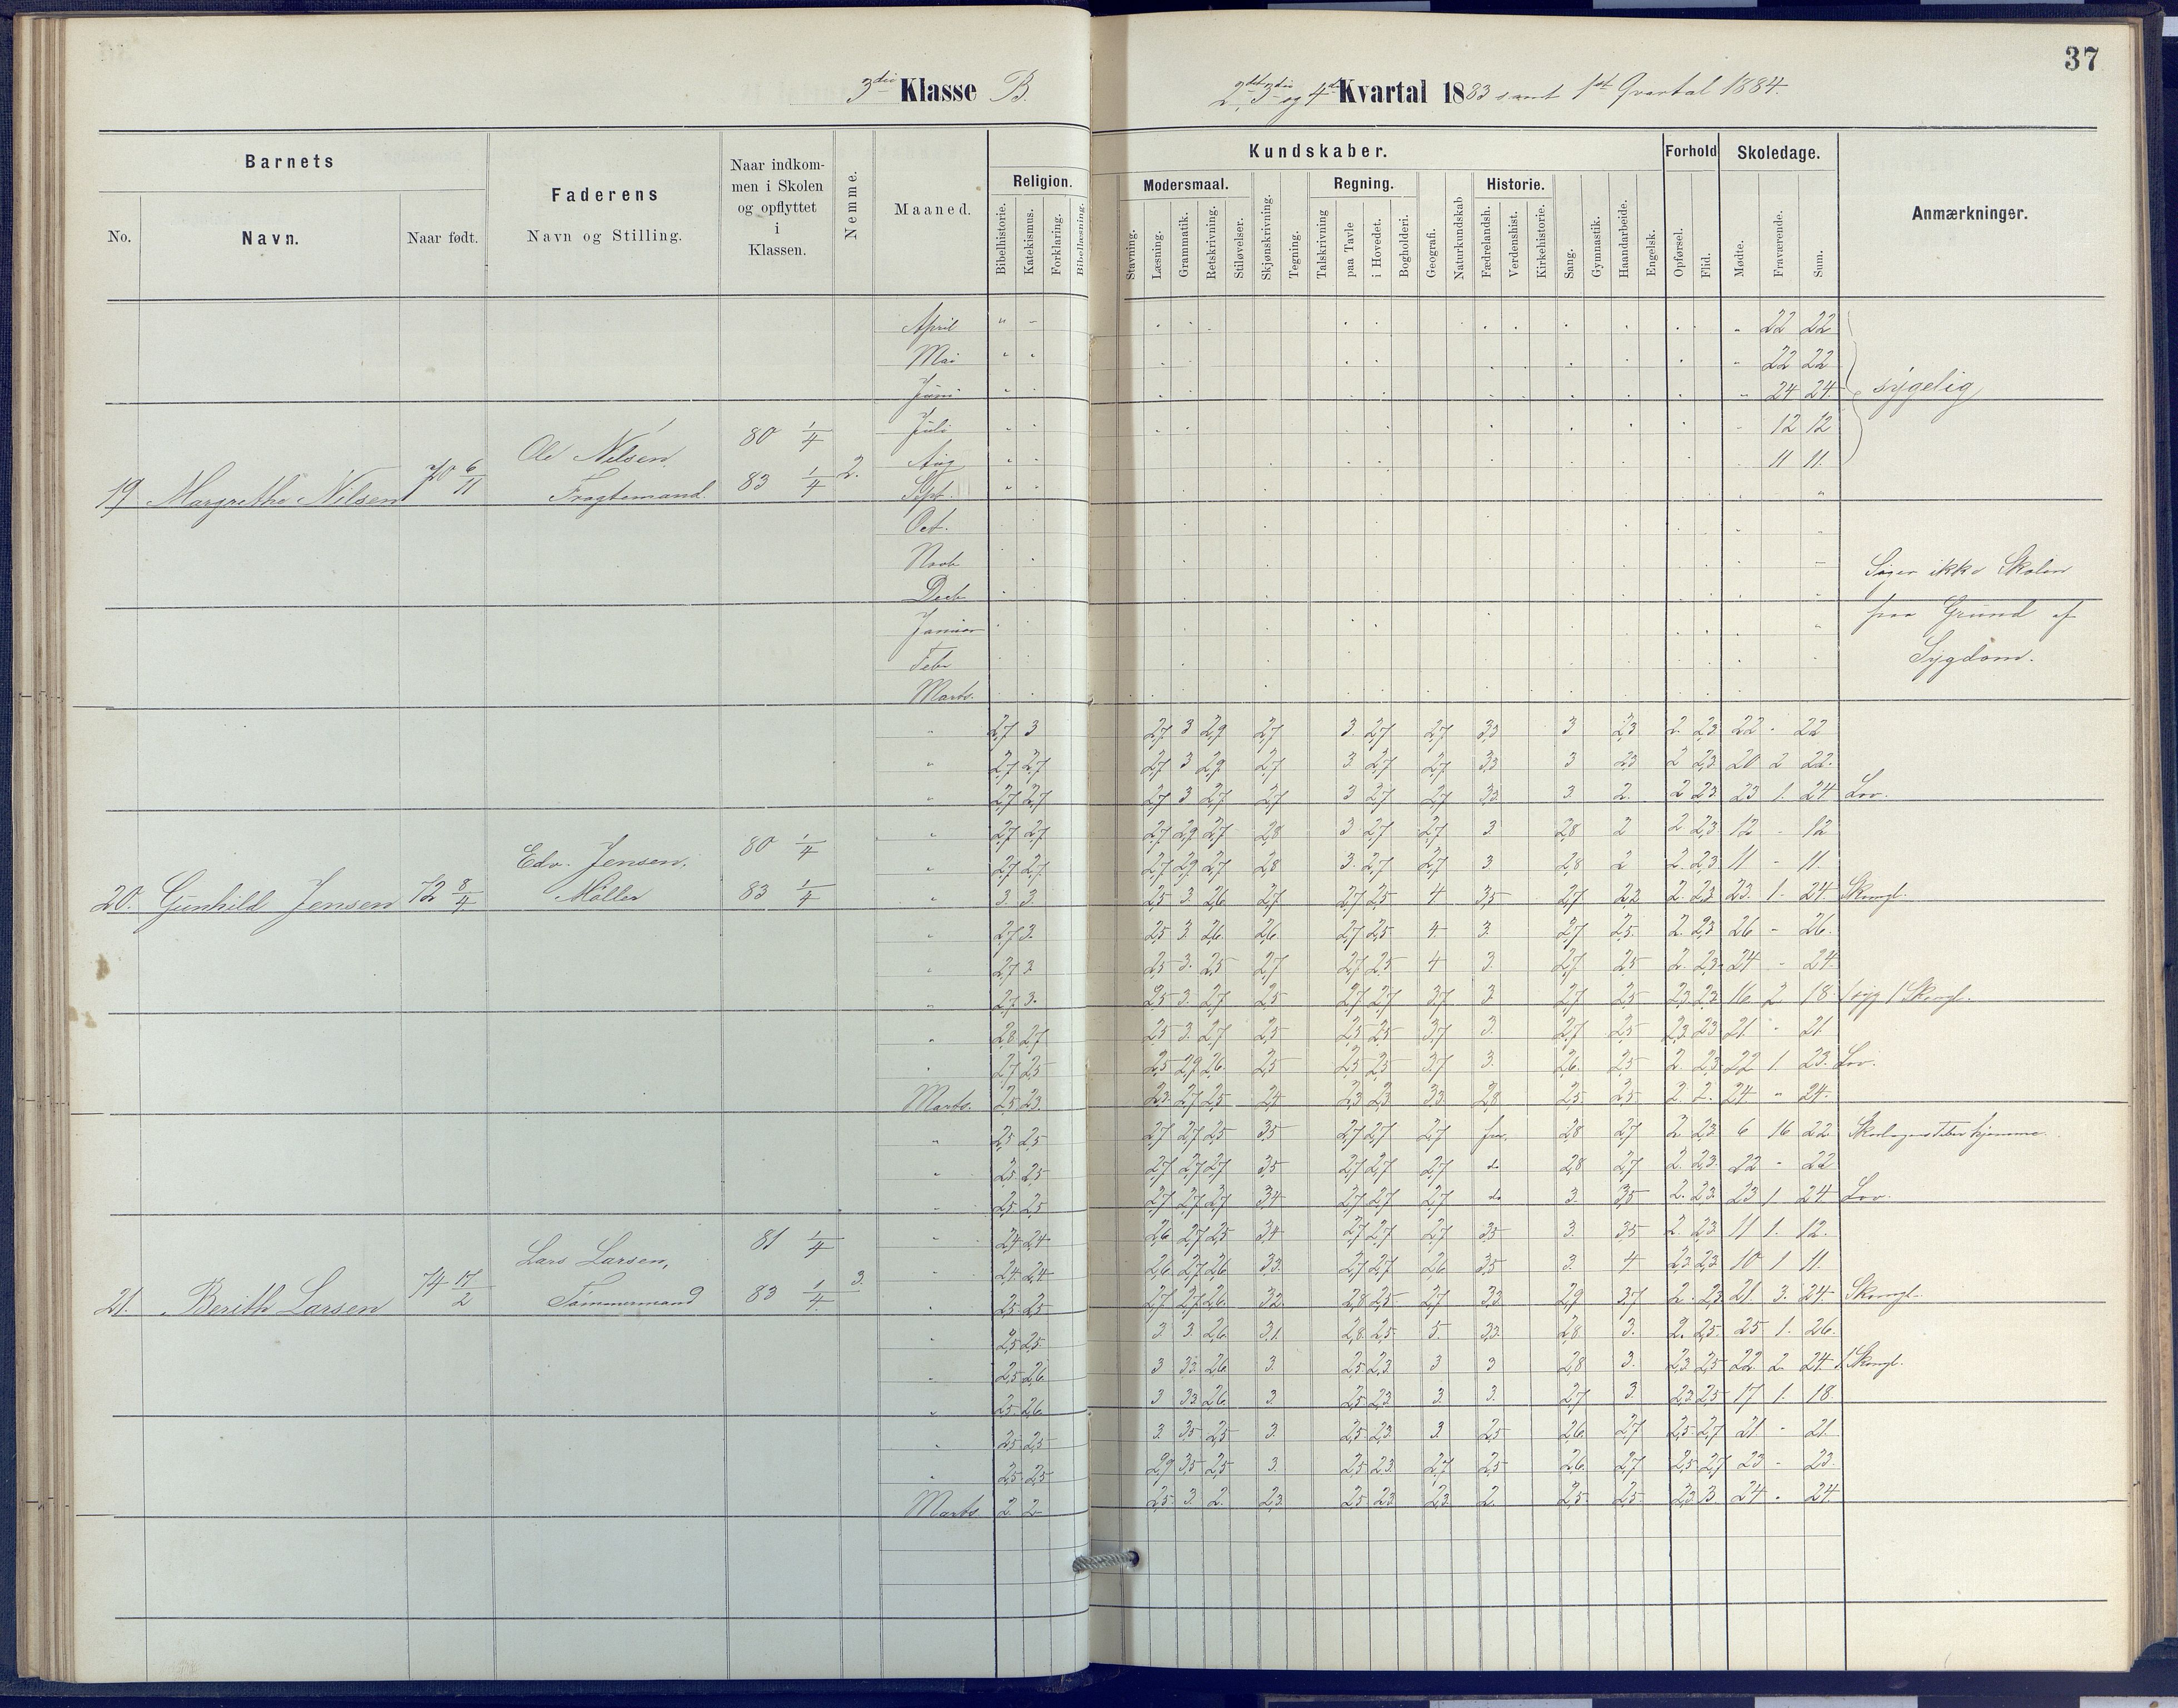 37
3die Klasse B.
2det, 3die og 4de Kvartal 1883 samt 1st Qvartal 1884.
Barnets
Faderens
Naar indkommen i Skolen og opflyttet i Klassen.
Nemme.
Maaned.
Kundskaber.
Forhold
Skoledage.
Anmærkninger.
No.
Navn.
Naar født.
Navn og Stilling.
Religion.
Modersmaal.
Regning.
Historie.
Bibelhistorie.
Katekismus.
Forklaring.
Bibellæsning.
Stavning.
Læsning.
Grammatik.
Retskrivning.
Stiløvelser.
Skjønskrivning.
Tegning.
Talskrivning
paa Tavle
i Hovedet.
Bogholderi.
Geografi.
Naturkundskab
Fædrelandsh.
Verdenshist.
Kirkehistorie.
Sang.
Gymnastik.
Haandarbeide.
Engelsk.
Opførsel.
Flid.
Mødte.
Fraværende.
Sum.
April 22 22
Mai 22 22
Juni 24 24
sygelig
Juli 12 12
Aug 11 11
19 Margrethe Nilsen 70 6/11 Ole Nilsen, Fragtemand. 80 1/4 83 1/4 2. Sept.
Oct.
Novb
Decb
Januar
Febr
Marts.
Søger ikke Skolen
paa Grund af
Sygdom.
2,7 3 2,7 3 2,9 2,7 3 2,7 2,7 3,3 3 2,3 2 2,3 22 - 22
2,7 2,7 2,7 3 2,9 2,7 3 2,7 2,7 3,3 3 2,3 2 2,3 20 2 22
2,7 2,7 2,7 3 2,7 2,7 3 2,7 2,7 3,3 3 2 2 2,3 23 1 24 Lov.
2,7 2,7 2,7 2,9 2,7 2,8 3 2,7 2,7 3 2,8 2 2 2,3 12 - 12
2,7 2,7 2,7 2,9 2,7 2,8 3 2,7 2,7 3 2,8 2 2 2,3 11 - 11
20. Gunhild Jensen 72 8/4 Edv. Jensen, Møller 80 1/4 83 1/4
3 3 2,5 3 2,6 2,7 2,7 2,5 4 3,5 2,7 2,2 2 2,3 23 1 24 Skomgl.
2,7 3 2,5 3 2,6 2,6 2,7 2,5 4 3 2,7 2,5 2 2,3 26 - 26
2,7 3 2,5 3 2,5 2,7 2,7 2,5 4 3 2,7 2,5 2 2,3 24 - 24
2,7 3 2,5 3 2,7 2,5 2,7 2,7 3,7 3 2,7 2,5 2,3 2,3 16 2 18 1 syg 1 Skomgl.
2,8 2,7 2,5 3 2,7 2,5 2,5 2,5 3,7 3 2,7 2,5 2,3 2,3 21 - 21
2,7 2,5 2,5 2,9 2,6 2,5 2,5 2,5 3,7 3 2,6 2,5 2 2,3 22 1 23 Lov.
Marts. 2,5 2,3 2,3 2,7 2,5 2,4 2,3 2,3 3,3 2,8 2,5 2,5 2 2 24 - 24
2,5 2,5 2,7 2,7 2,5 3,5 2,7 2,7 2,7 2,8 2,7 2 2,3 6 16 22 hjemme
2,5 2,5 2,7 2,7 2,7 3,5 2,7 2,7 2,7 do 2,8 2,7 2 2,3 22 - 22
2,5 2,5 2,7 2,7 2,7 3,4 2,7 2,7 2,7 do 3 3,5 2 2,3 23 1 24 Lov.
2,4 2,4 2,6 2,7 2,5 3,4 2,7 2,7 2,7 3,5 3 3,5 2 2,3 11 1 12
2,4 2,4 2,6 2,7 2,6 3,3 2,7 2,7 2,6 3,5 3 4 2,3 2,3 10 1 11
21. Berith Larsen 74 17/2 Lars Larsen, Tømmermand 81 1/4 83 1/4 3.
2,5 2,5 2,7 2,7 2,6 3,2 2,8 2,5 2,7 3,3 2,9 3,7 2 2,3 21 3 24 Skomgl.
2,5 2,5 3 3 2,6 3,1 2,8 2,5 5 3,3 2,8 3 2 2,5 25 1 26
2,5 2,6 3 3,3 2,6 3 2,5 2,3 3 3 2,8 3 2,3 2,5 22 2 24 1 Skomgl.
2,5 2,6 3 3,3 2,6 3 2,5 2,3 3 3 2,7 3 2,3 2,5 17 1 18
2,5 2,5 3 3,5 2,5 3 2,5 2,3 3 2,5 2,6 2,7 2,5 2,7 21 - 21
2,5 2,5 2,9 3,5 2,5 3 2,5 2,3 2,7 2,5 2,6 2,7 2,5 2,7 23 - 23
Marts 2 2 2,5 3 2 2,3 2,5 2,3 2,3 2 2,5 2,5 2,3 3 24 - 24